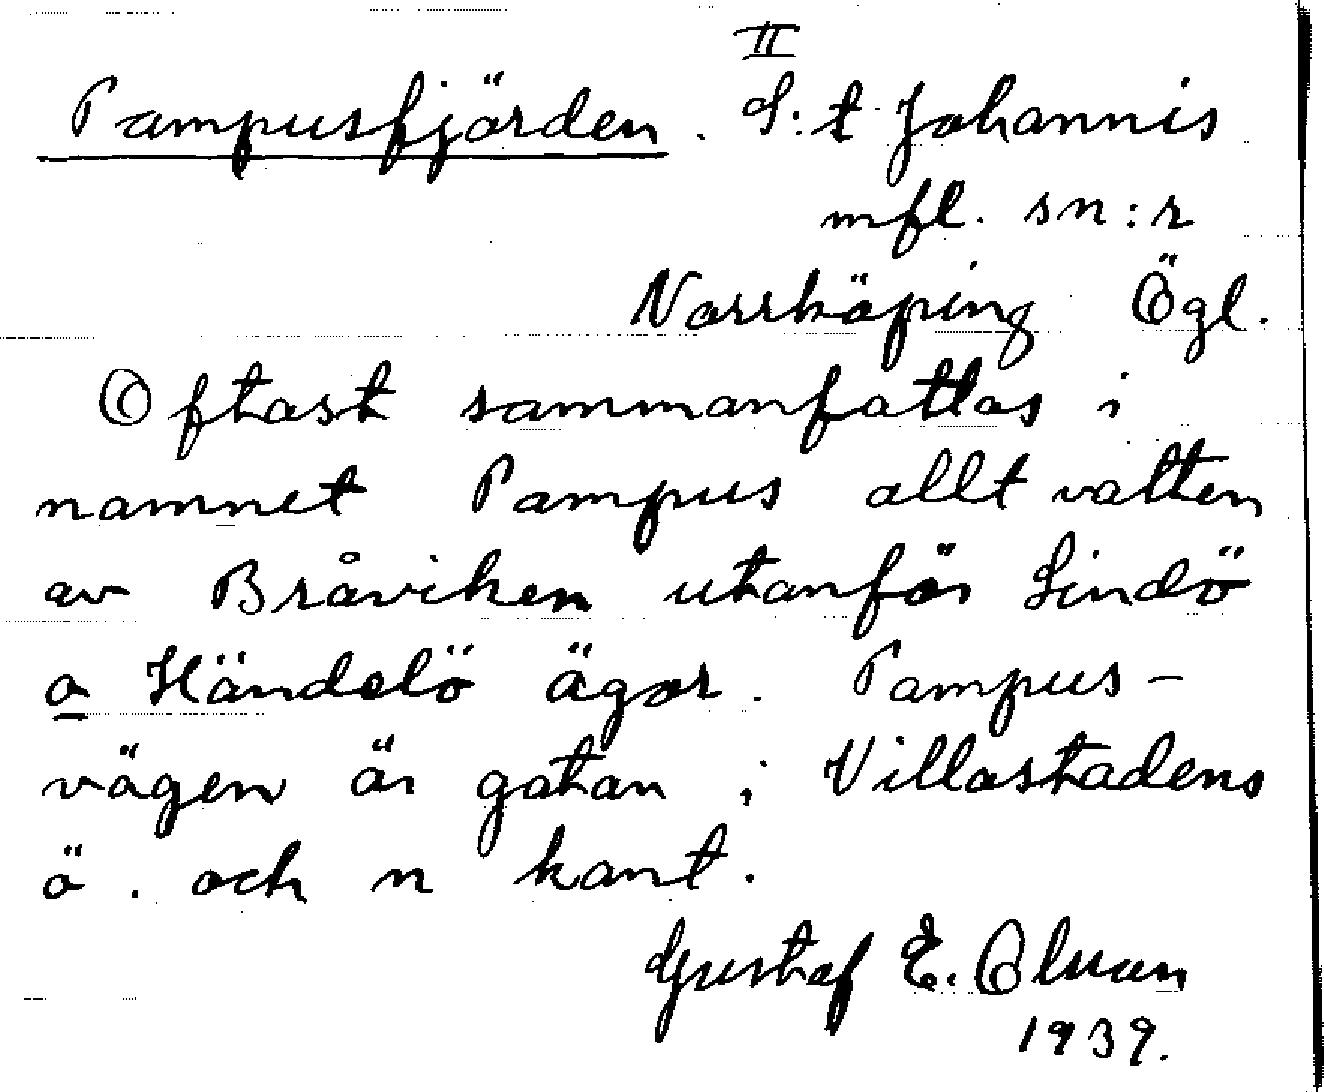 II
Pampusfjärden. S:t Johannis
mfl. sn:r
Norrköping Ögl.
Oftast sammanfattas i
namnet Pampus allt vatten
av Bråviken utanför Lindö
o Händelö ägor. Pampus-
vägen är gatan i Villastadens
ö. och n kant.
Gustaf E. Olman
1939.